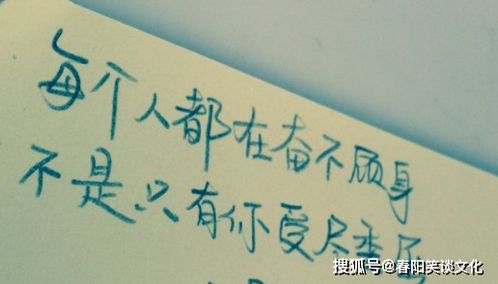 每个人都在奋不顾身
不是只有你受尽委屈
搜狐号@春阳笑谈文化